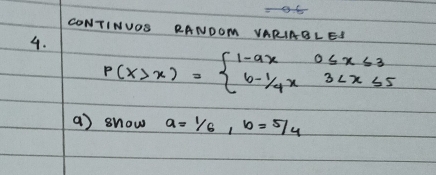 CONTINUOS RANDOM VARIABLES
4.
P(X>x) = { 1-ax 0≤x≤3
b-1/4x 3<x≤5
a) show a=1/6 , b=5/4